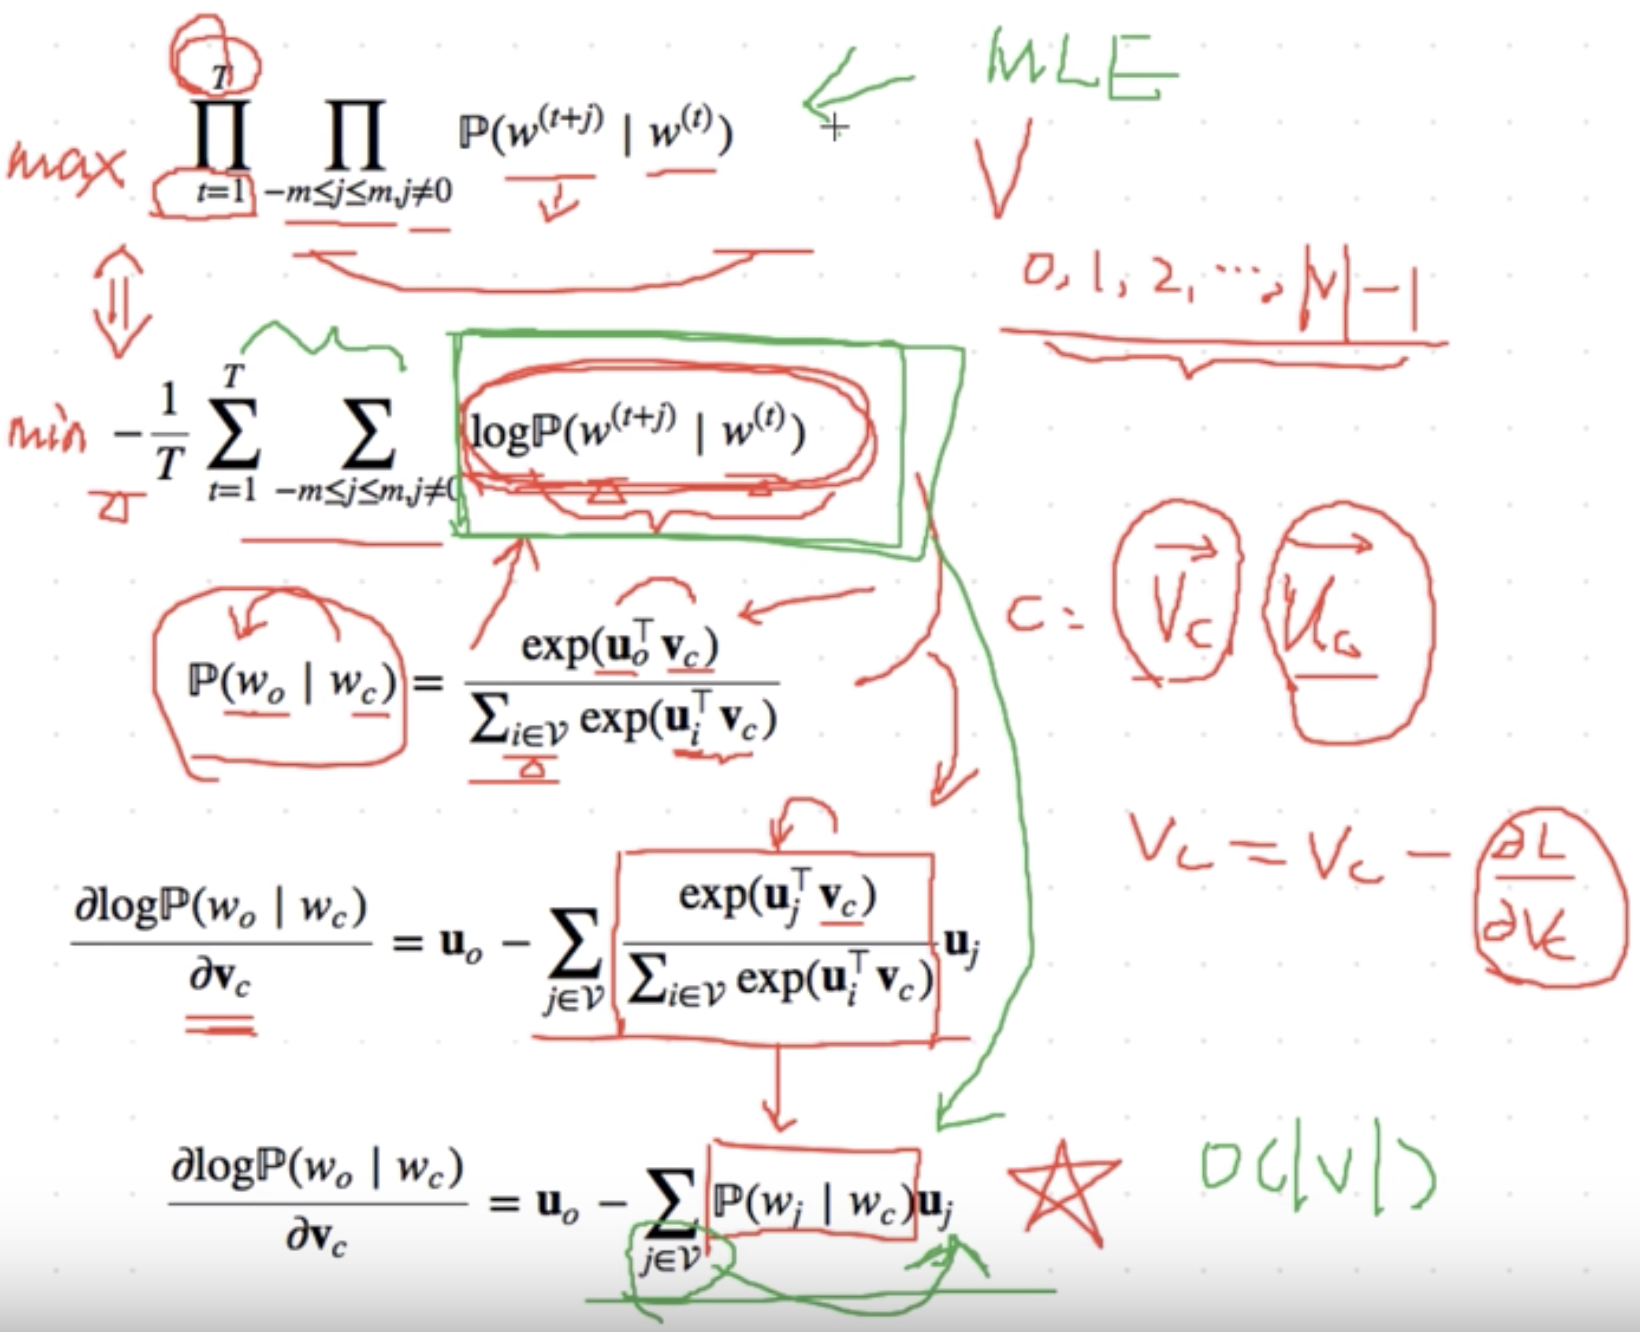 MLE
max ∏_{t=1}^{T} ∏_{-m≤j≤m,j≠0} ℙ(w^{(t+j)} | w^{(t)})
V
0, 1, 2, ..., |V| - 1
min -1/T ∑_{t=1}^{T} ∑_{-m≤j≤m,j≠0} logℙ(w^{(t+j)} | w^{(t)})
c = V_c U_c
ℙ(w_o | w_c) = exp(u_o^⊤ v_c) / ∑_{i∈𝒱} exp(u_i^⊤ v_c)
V_c = V_c - ∂L/∂V_c
∂logℙ(w_o | w_c)/∂v_c = u_o - ∑_{j∈𝒱} exp(u_j^⊤ v_c) / ∑_{i∈𝒱} exp(u_i^⊤ v_c) u_j
∂logℙ(w_o | w_c)/∂v_c = u_o - ∑_{j∈𝒱} ℙ(w_j | w_c)u_j
O(|V|)